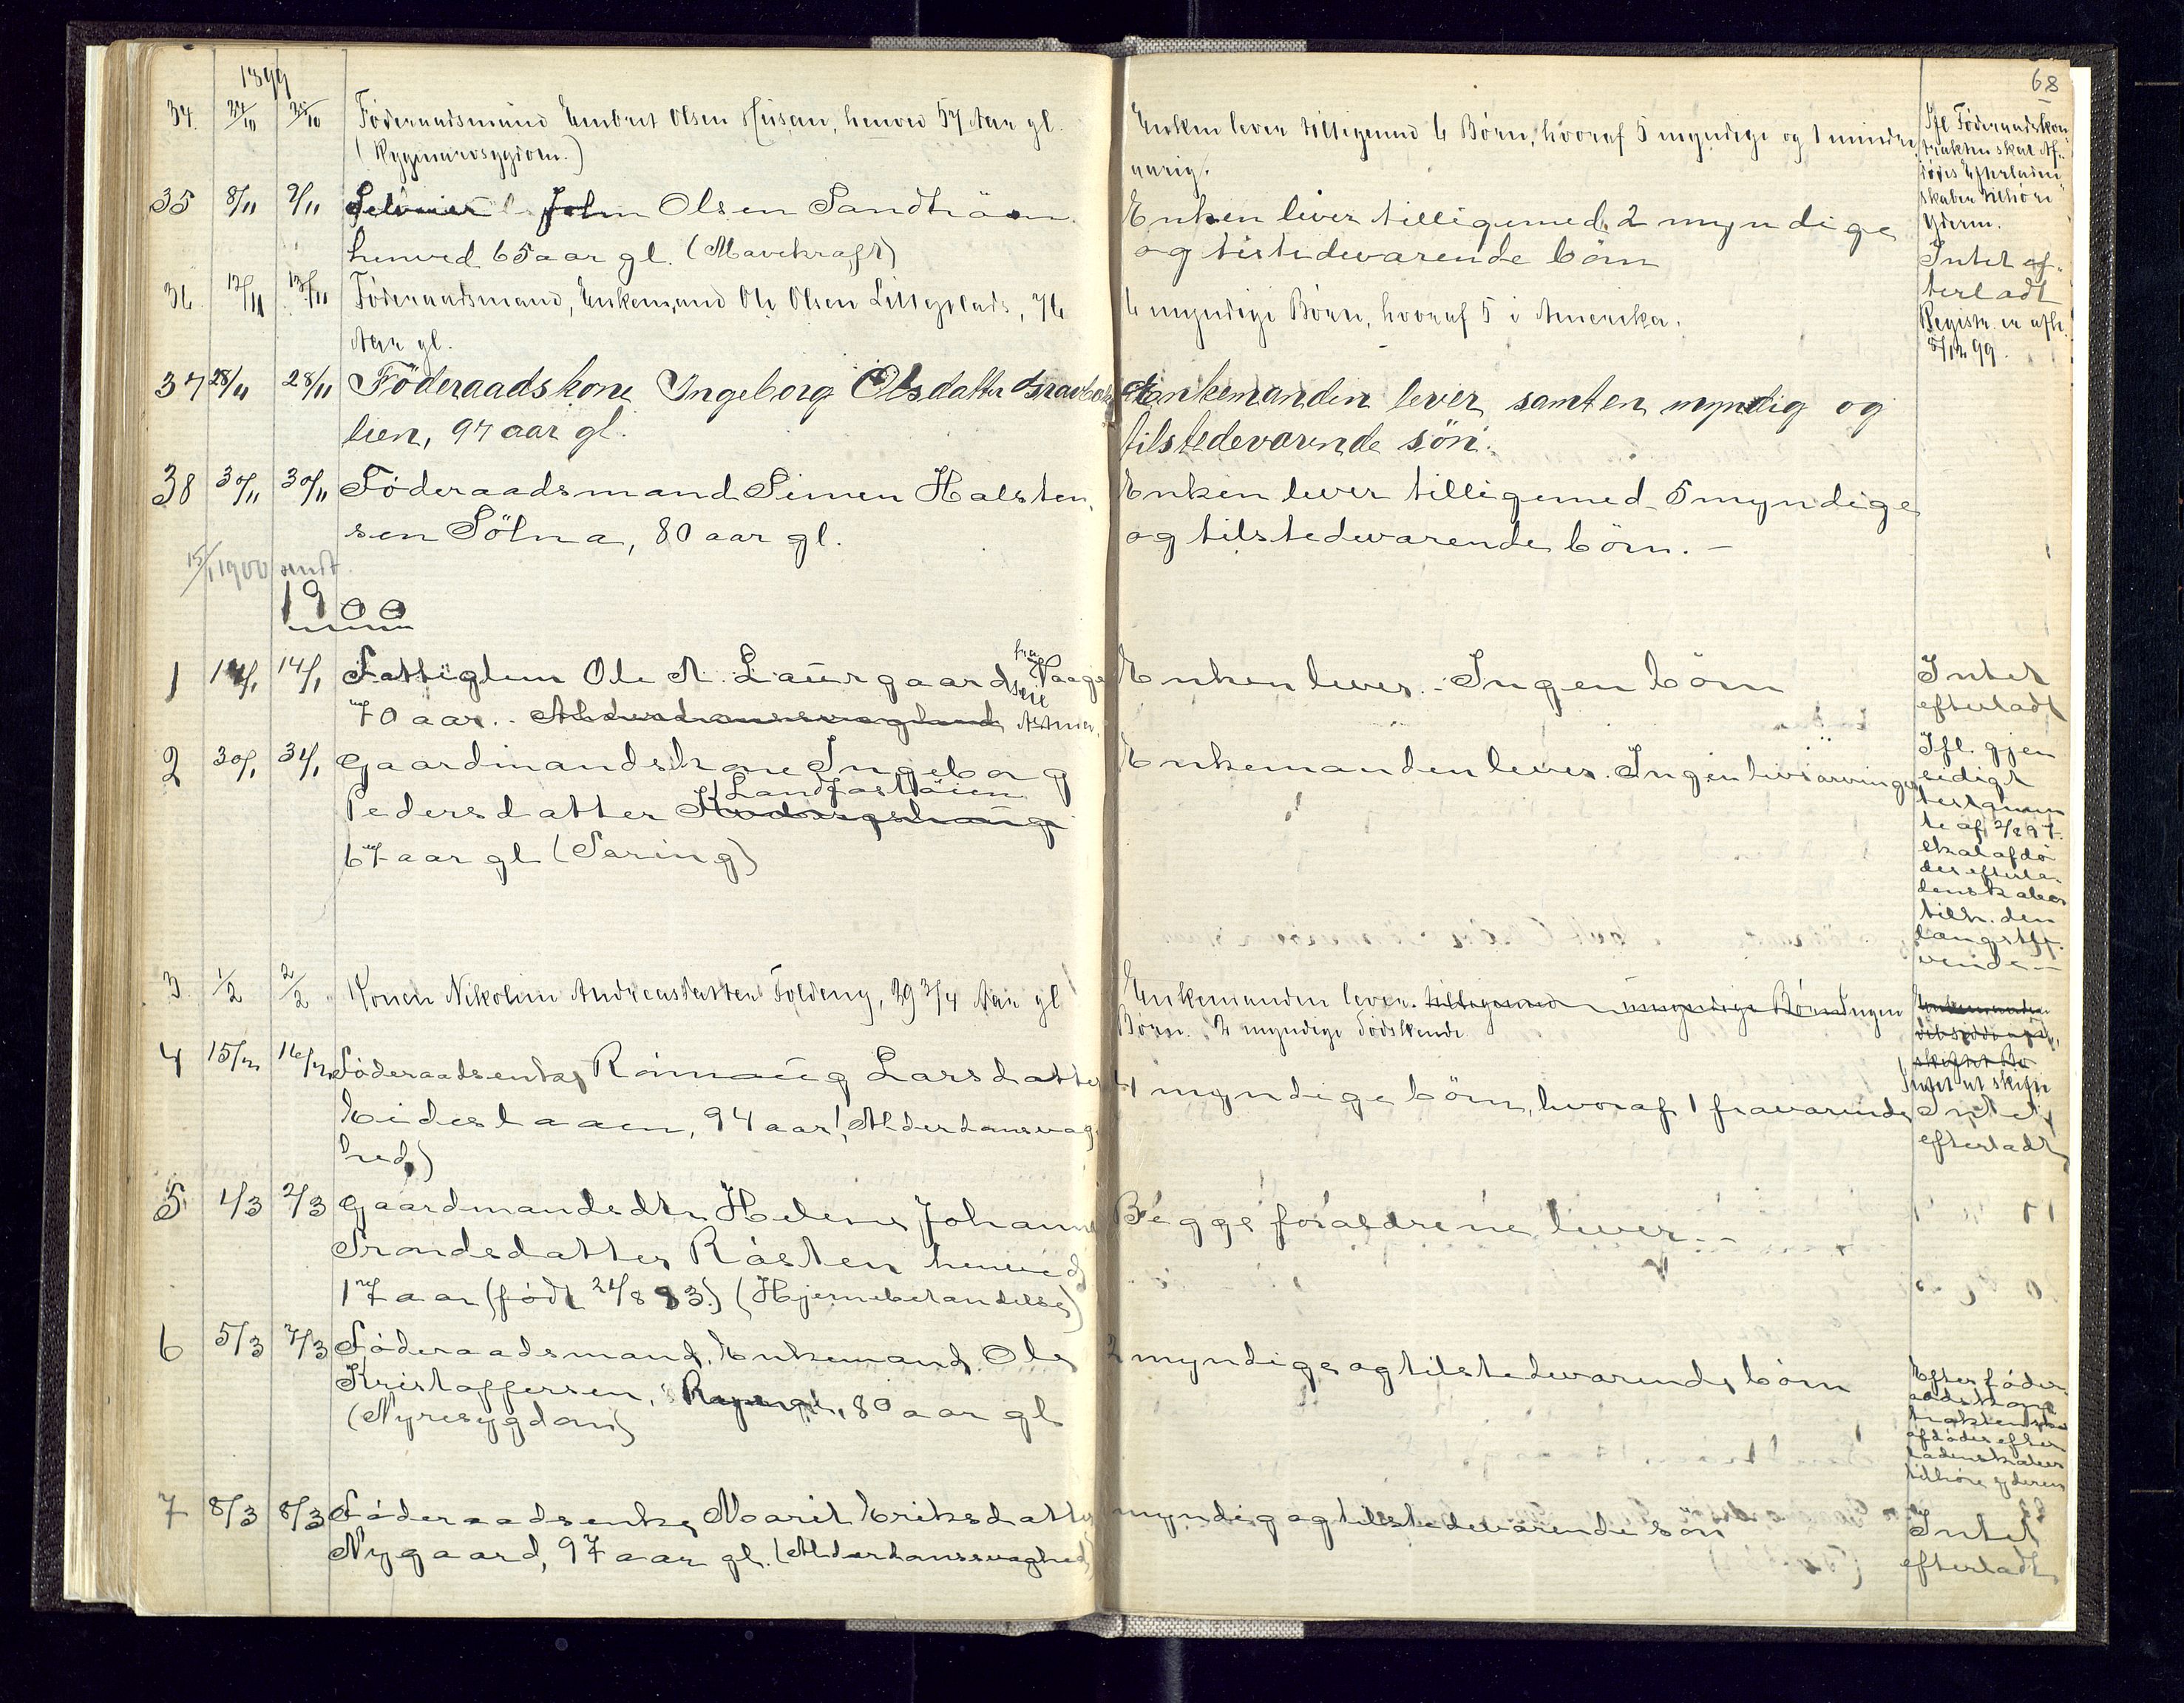 68
1899
34. 24/10 25/10 Föderaadsmand Embret Olsen Husan, henved 57 Aar gl.
(Rygmarvsygdom.)
Enken lever tilligemed 6 Børn, hvoraf 5 myndige og 1 mindre
aarig.
Ifl. Föderaadskon
trakten skal Af-
dødes Efterladen
skaber tilhøre
Yderen.
35 8/11 9/11 John Olsen Sandtrøen.
henved 65 aar gl. (Mavekræft)
Enken lever tilligemed 2 myndige
og tilstedeværende börn
Intet ef-
terladt
36. 12/11 13/11 Föderaadsmand, Enkemand Ole Olsen Lilleplads, 76
Aar gl.
6 myndige Børn, hvoraf 5 i Amerika.
Registr. er afh.
8/12 99.
37 28/11 28/11 Föderaadskone Ingeborg Olsdatter
lien, 97 aar gl.
Enkemanden lever, samt en myndig og
tilstedeværende sön.
38 30/11 30/11 Föderaadsmand Simen Halsten-
sen Sölna, 80 aar gl.
Enken lever tilligemed 5 myndige
og tilstedeværende börn. –
15/1 1900 sendt.
1900
1 14/1 14/1 Fattiglem Ole A. Laurgaard fra Vaage
70 aar. Astma.
Enken lever. – Ingen börn
Intet
efterladt
2 30/1 31/1 Gaardmandskone Ingeborg
Landfastöien
Pedersdatter
67 aar gl (Tæring)
Enkemanden lever. Ingen livsarvinger
Ifl. gjen
sidigt
testamen
te af 2/8 97.
skal afdö
des efterla-
denskaber
tilh. den
længstle-
vende –
3. 1/2 2/2 Konen Nikoline Andreasdatter Foldeng, 39 3/4 Aar gl
Enkemanden lever. tilligemed myndige Børn Ingen
Børn. 2 myndige Södskende.
Enkemanden
skiftet Bo
Intet at skifte
4 15/2 16/2 Föderaadsenke Rönnaug Larsdatter
Eideslaaen, 94 aar! (Alderdomssvag-
hed)
4 myndige börn, hvoraf 1 fraværende
Intet
efterladt
5 1/3 2/3 Gaardmandsdtr Helene Johanne
Trondsdatter Råsten henved
17 aar (född 24/8 83.) (Hjernebetændelse)
Begge forældrene lever. –
6 5/3 7/3 Föderaadsmand, Enkemand Ole
Kristoffersen, 80 aar gl
(Nyresygdom)
2 myndige og tilstedeværende börn
Efter föder-
aadskon-
trakten skal
afdödes efter
ladenskaber
tilhöre yderen
7 8/3 8/3 Föderaadsenke Marit Eriksdatter
Nygaard, 97 aar gl. (Alderdomssvaghed)
myndig og tilstedeværende sön
Intet
efterladt